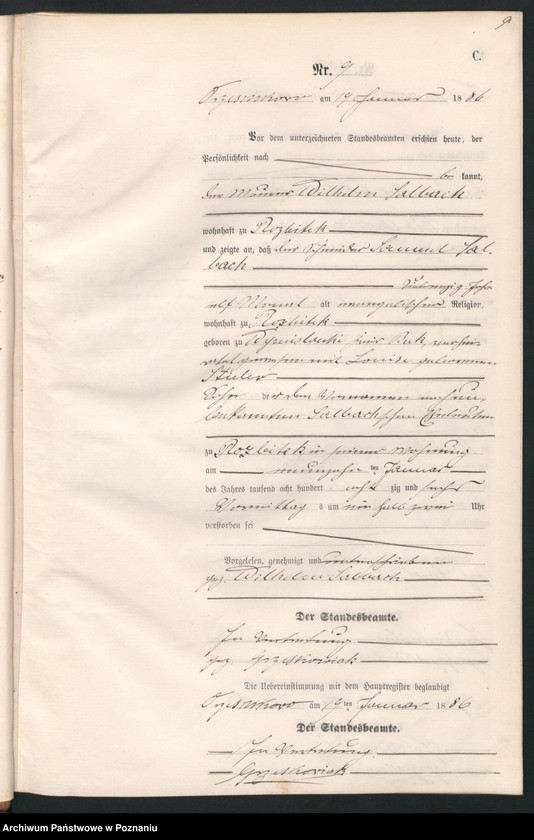 9
C.
Nr. 9
am 19 Januar 1886
Vor dem unterzeichneten Standesbeamten erschien heute, der
Persönlichkeit nach
be kannt,
der Maurer Wilhelm Salbach
wohnhaft zu Rozbitek
und zeigte an, daß der Schneider Samuel Sal-
bach
elf Monat alt evangelischer Religion,
wohnhaft zu Rozbitek
geboren zu verhei-
rathet gewesen mit Louise geborenen
Stüler
Sohn der dem Vornamen nach un-
bekannten Salbachschen Eheleuten
zu Rozbitek in seiner Wohnung
am neunzehn ten Januar
des Jahrs tausend acht hundert acht zig und sechs
Vormittag s um ein halb zwei Uhr
verstorben sei
Vorgelesen, genehmigt und unterschrieben
gez. Wilhelm Salbach
Der Standesbeamte.
In Vertretung
gez. Grzeskowiak
Die Uebereinstimmung mit dem Hauptregister beglaubigt
am 19 ten Januar 1886
Der Standesbeamte.
In Vertretung.
Grzeskowiak
Archiwum Państwowe w Poznaniu